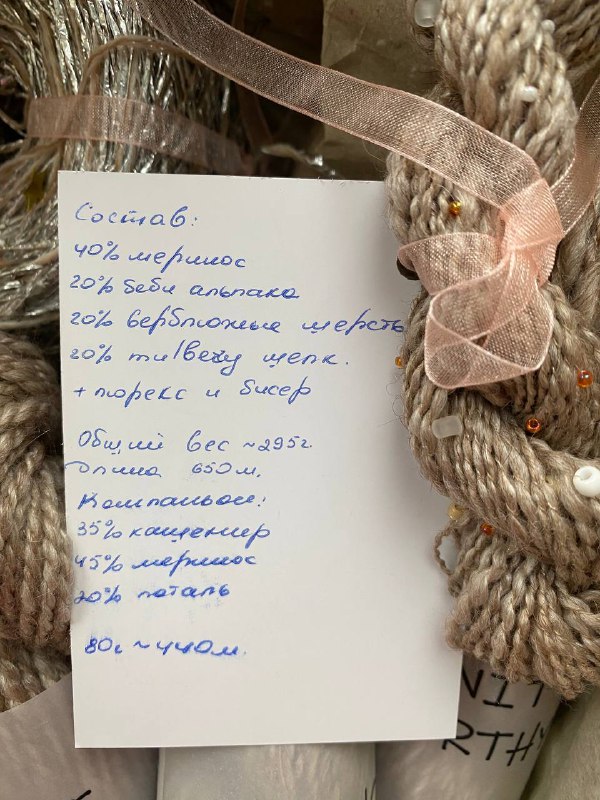 Состав:
40% меринос
20% беби альпака
20% верблюжья шерсть
20% ти/вечу шелк.
+ люрекс и бисер
Общий вес ~295г
Длина 650м.
Компаньон:
35% кашемир
45% меринос
20% поталь
80г ~ 440м.
NIT
RTHY